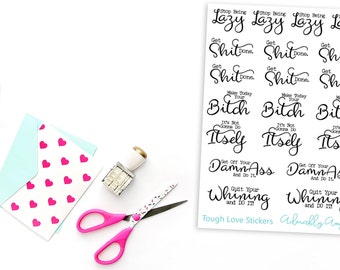 Stop Being Stop Being Stop Being
Lazy Lazy Lazy
Get Get
Shit Done. Shit Done.
Get Get
Shit Done. Shit Done.
Make Today Make Today
Your Your
Bitch Bitch
It's Not It's Not
Gonna Do Gonna Do
Itself Itself
Get Off Your Get Off Your
Damn Ass Damn Ass
and Do It. and Do It.
Quit Your Quit Your
Whining Whining
and DO IT! and DO IT!
Tough Love Stickers